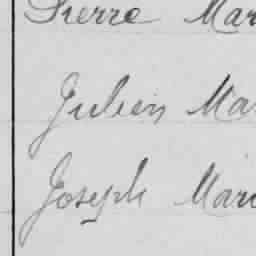 Pierre Mar
Julien Ma
Joseph Mari